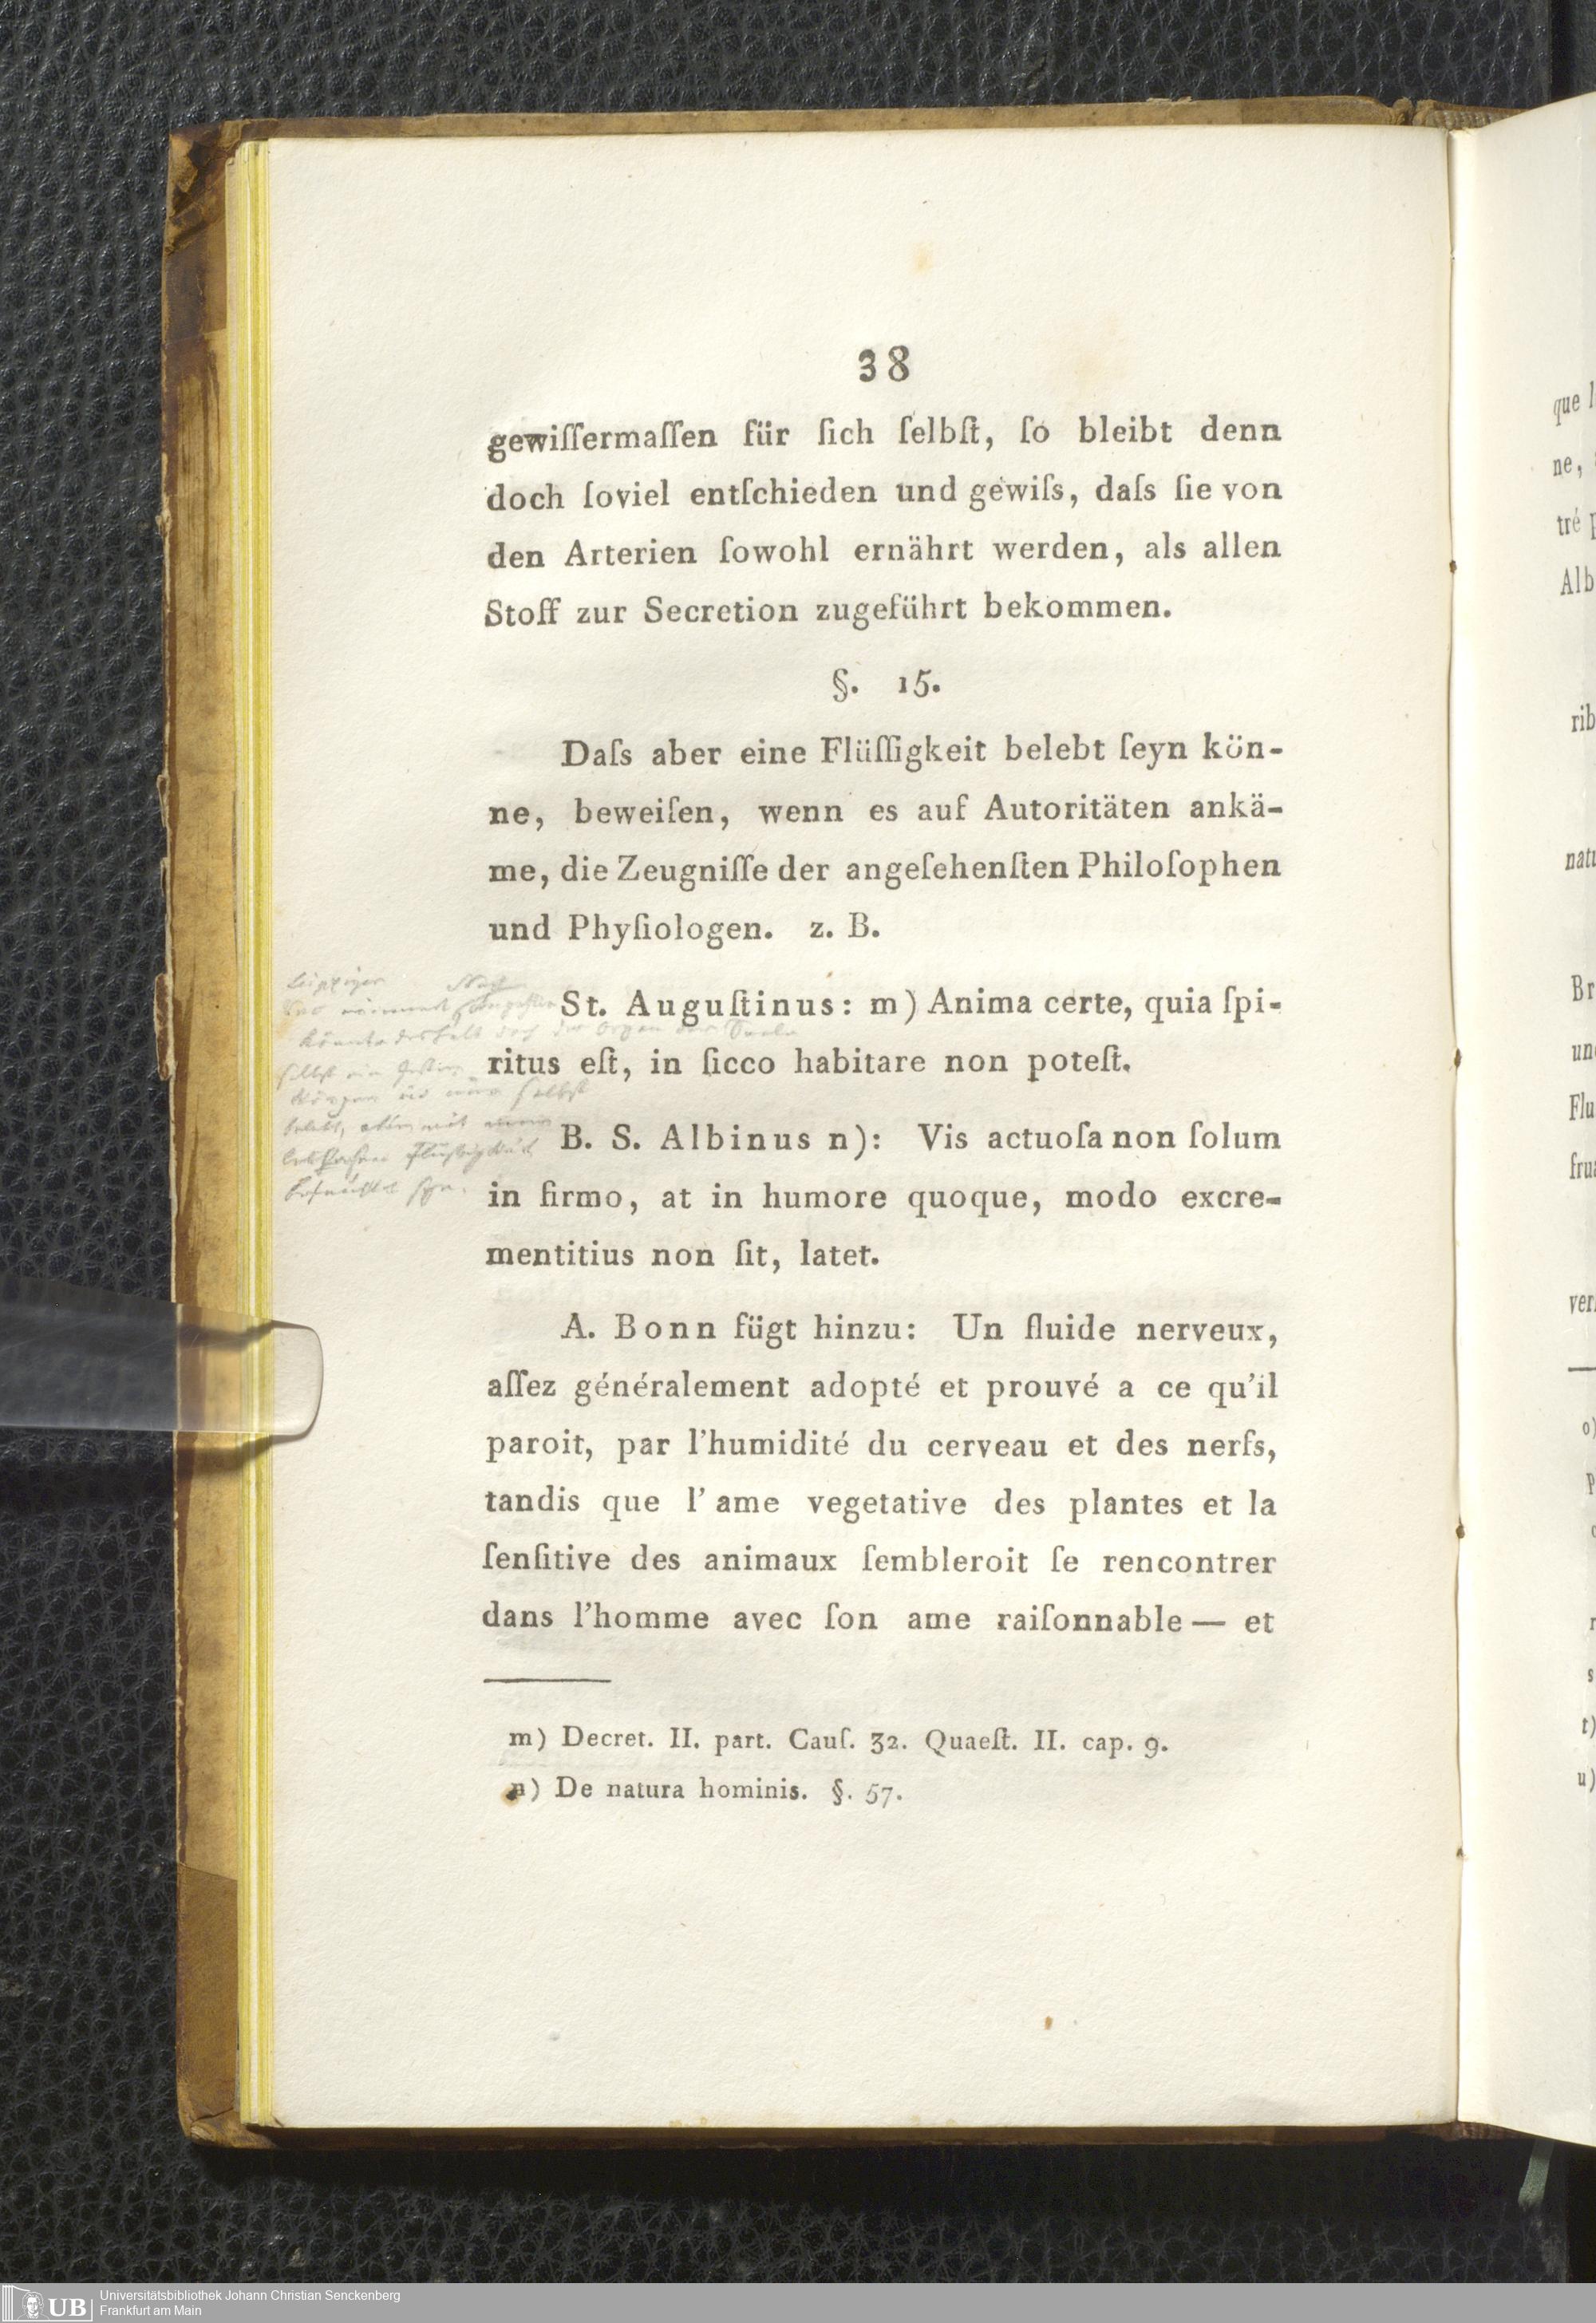 38
gewiſſermaſſen für ſich ſelbſt, ſo bleibt denn
doch ſoviel entſchieden und gewiſs, daſs ſie von
den Arterien ſowohl ernährt werden, als allen
Stoff zur Secretion zugeführt bekommen.
§. 15.
Daſs aber eine Flüſſigkeit belebt ſeyn kön-
ne, beweiſen, wenn es auf Autoritäten ankä-
me, die Zeugniſſe der angeſehenſten Philoſophen
und Phyſiologen. z. B.
St. Auguſtinus: m) Anima certe, quia ſpi-
ritus eſt, in ſicco habitare non poteſt.
B. S. Albinus n): Vis actuoſa non ſolum
in firmo, at in humore quoque, modo excre-
mentitius non ſit, latet.
A. Bonn fügt hinzu: Un fluide nerveux,
aſſez généralement adopté et prouvé a ce qu'il
paroit, par l'humidité du cerveau et des nerfs,
tandis que l' ame vegetative des plantes et la
ſenſitive des animaux ſembleroit ſe rencontrer
dans l'homme avec ſon ame raiſonnable — et
m) Decret. II. part. Cauſ. 32. Quaeſt. II. cap. 9.
n) De natura hominis. §. 57.
que
ne,
tré
Alb
rib
natu
Br
un
Flu
fru
ver
o)
t)
u)
UB
Universitätsbibliothek Johann Christian Senckenberg
Frankfurt am Main